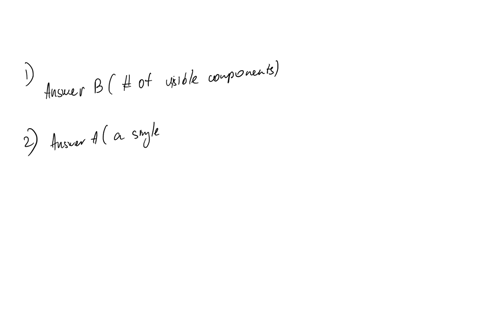 1) Answer B ( # of visible components)
2) Answer A ( a single